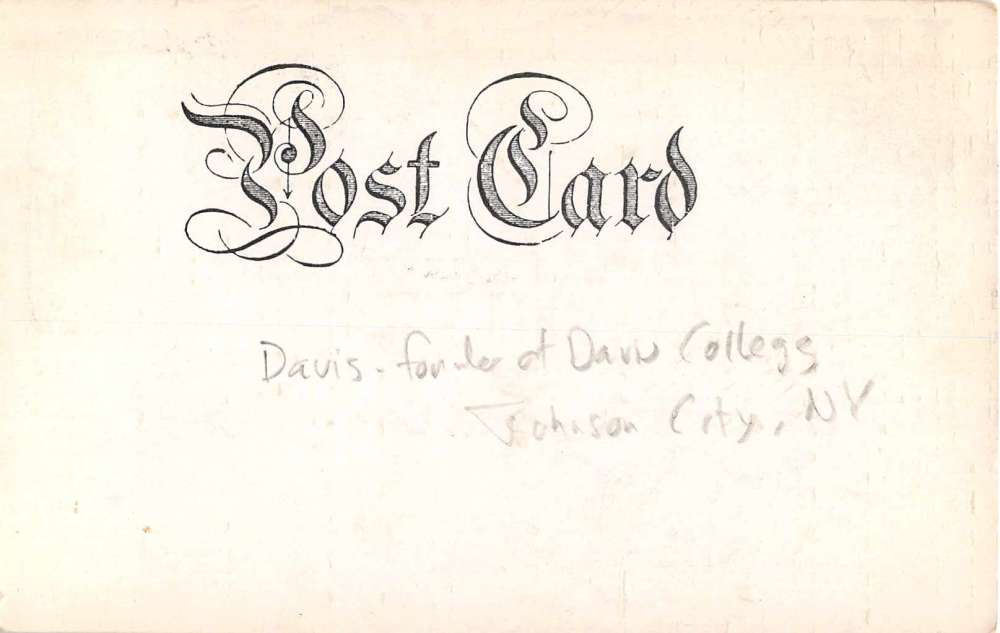 Post Card
Davis - founder of Davis College
Johnson City, NY